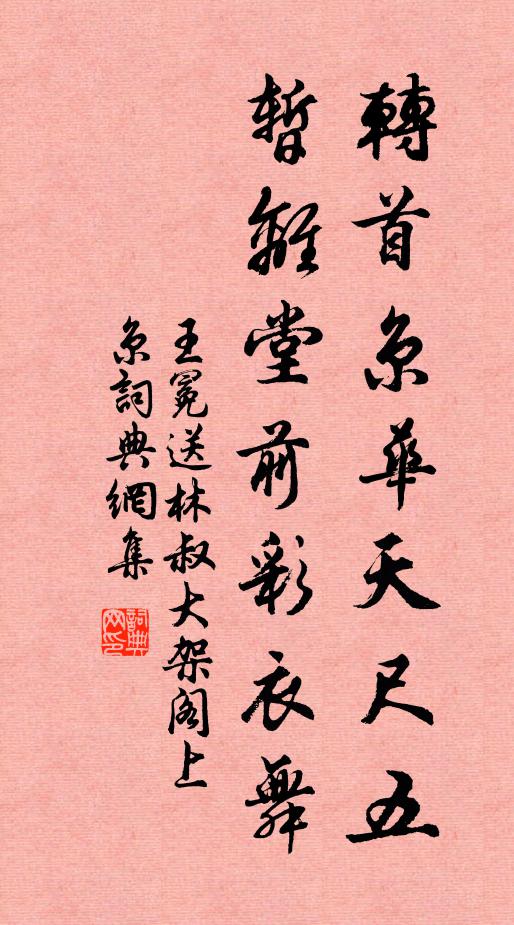 轉首京華天尺五
暫離堂前彩衣舞
王冕送林叔大架閣上
京詞典網集
詞典
网印